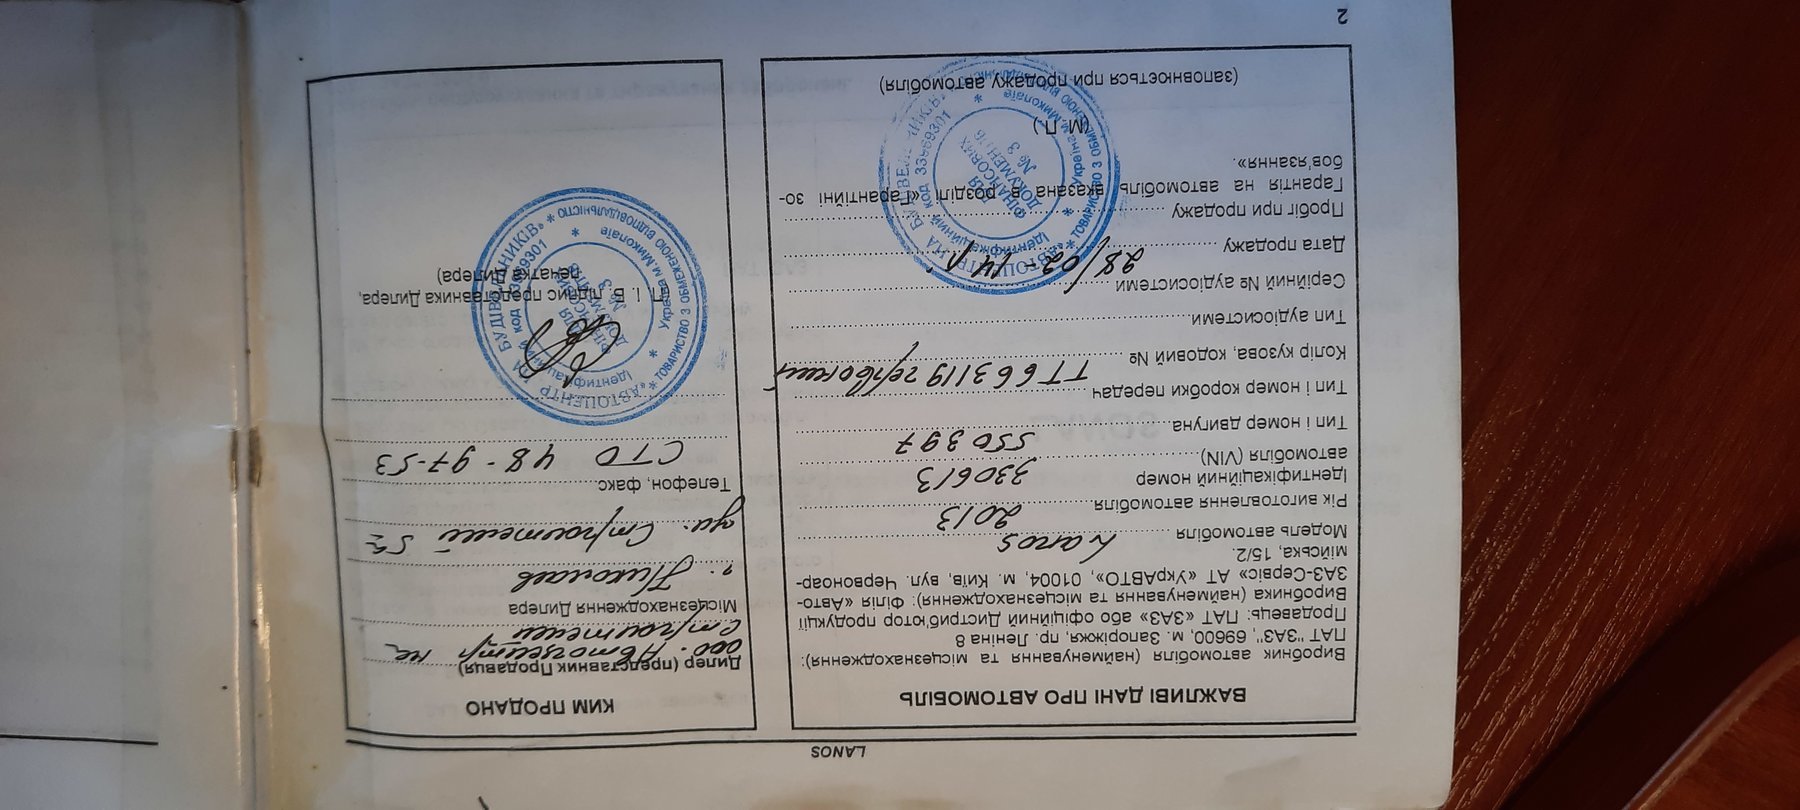 LANOS
ВАЖЛИВІ ДАНІ ПРО АВТОМОБІЛЬ
Виробник автомобіля (найменування та місцезнаходження):
ПАТ "ЗАЗ", 69600, м. Запоріжжя, пр. Леніна 8
Продавець: ПАТ «ЗАЗ» або офіційний Дистриб'ютор продукції
Виробника (найменування та місцезнаходження): Філія «Авто-
ЗАЗ-Сервіс» АТ «УкрАВТО», 01004, м. Київ, вул. Червоноар-
мійська, 15/2.
Модель автомобіля Lanos
Рік виготовлення автомобіля 2013
Ідентифікаційний номер 330613
автомобіля (VIN)
550397
Тип і номер двигуна
Тип і номер коробки передач
ТТ663119 червоний
Колір кузова, кодовий №
Тип аудіосистеми
Серійний № аудіосистеми
28/02-14
Дата продажу
Пробіг при продажу
Гарантія на автомобіль вказана в розділі «Гарантійні зо-
бов'язання».
(М.П.)
(заповнюється при продажу автомобіля)
ТОВАРИСТВО З ОБМЕЖЕНОЮ ВІДПОВІДАЛЬНІСТЮ
Україна м.Миколаїв
Ідентифікаційний код 33989301
ДЛЯ
ФІНАНСОВИХ
ДОКУМЕНТІВ
№ 3
КИМ ПРОДАНО
Дилер (представник Продавця)
ооо. Автоцентр на
Строителей
Місцезнаходження Дилера
г. Николаев
ул. Строителей
Телефон, факс
СТО 48-97-53
П. І. Б. підпис представника Дилера,
печатка Дилера)
«АВТОЦЕНТР НА БУДІВЕЛЬНИКІВ»
ТОВАРИСТВО З ОБМЕЖЕНОЮ ВІДПОВІДАЛЬНІСТЮ
Україна м.Миколаїв
№ 3
2